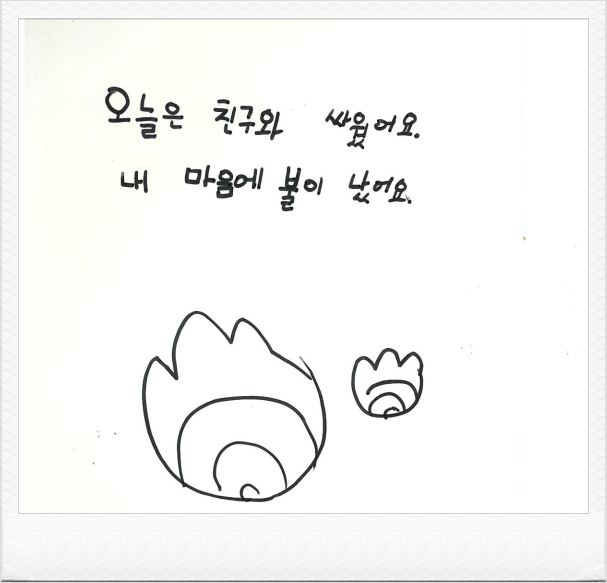 오늘은 친구와 싸웠어요.
내 마음에 불이 났어요.